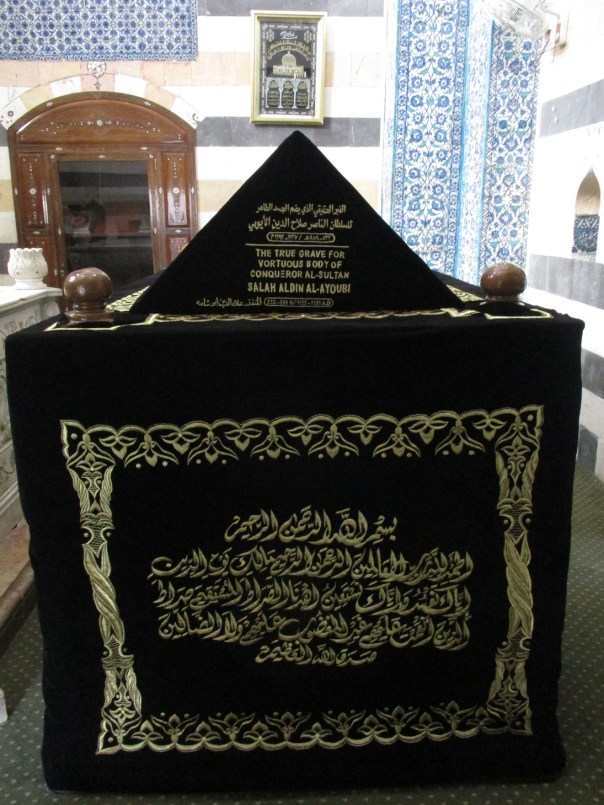 القبر الحقيقي الذي يضم الجسد الطاهر
للسلطان الناصر صلاح الدين الأيوبي
THE TRUE GRAVE FOR
VORTUOUS BODY OF
CONQUEROR AL-SULTAN
SALAH ALDIN AL-AYOUBI
بسم الله الرحمن الرحيم
الحمد لله رب العالمين الرحمن الرحيم مالك يوم الدين
إياك نعبد وإياك نستعين اهدنا الصراط المستقيم صراط
الذين أنعمت عليهم غير المغضوب عليهم ولا الضالين
صدق الله العظيم